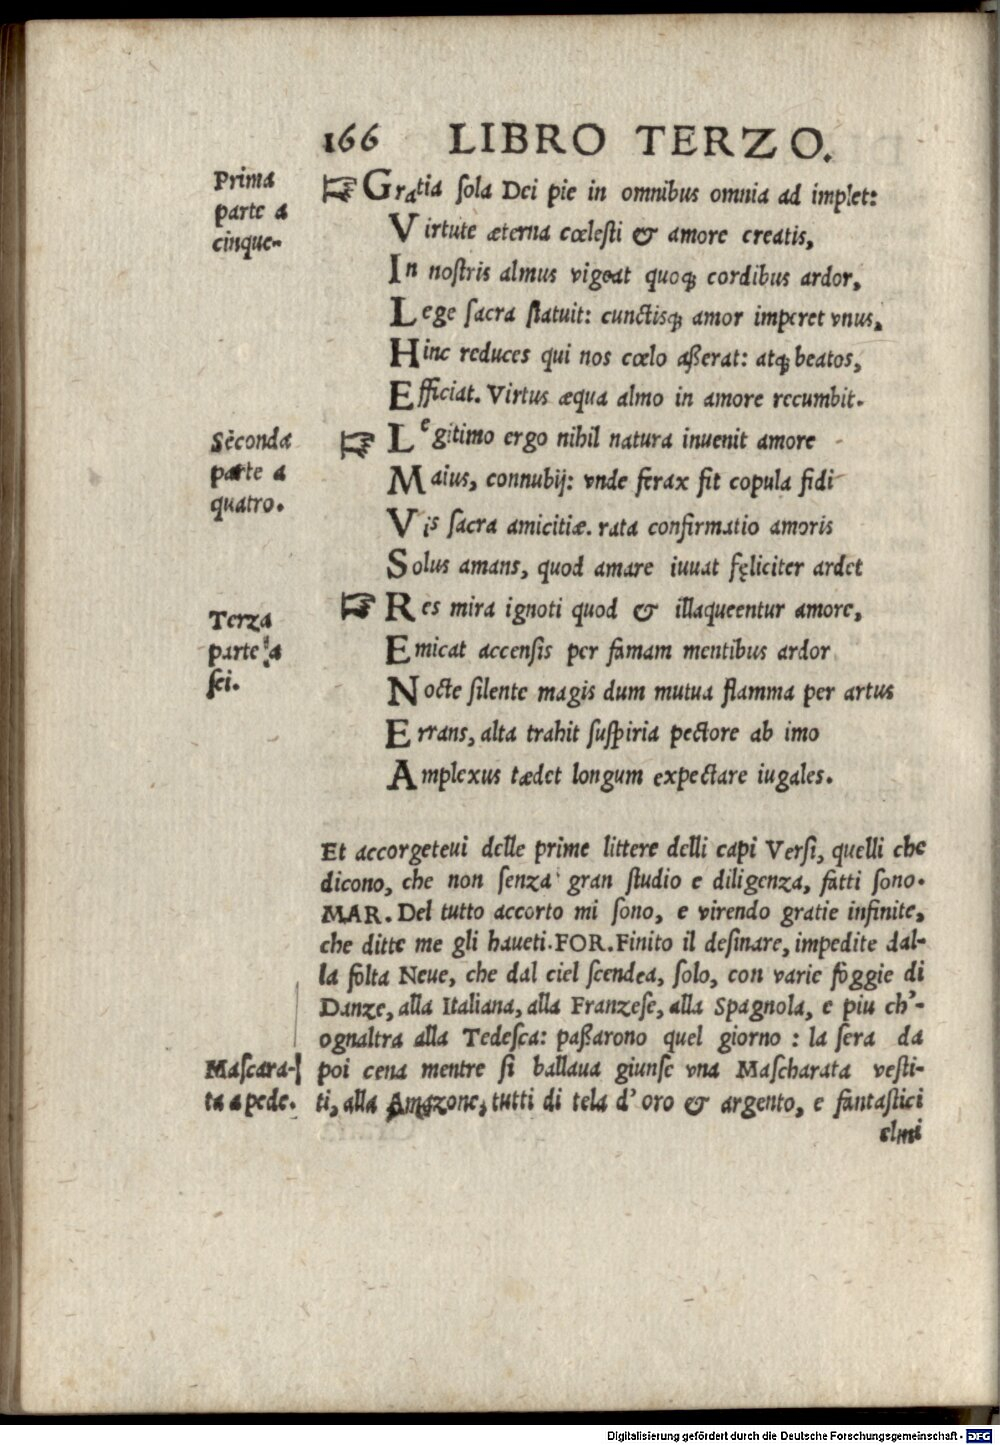 166 LIBRO TERZO.
Prima
parte a
cinque-
☞ Gratia sola Dei pie in omnibus omnia ad implet:
Virtute æterna cœlesti & amore creatis,
In nostris almus vigeat quoq; cordibus ardor,
Lege sacra statuit: cunctisq; amor imperet vnus,
Hinc reduces qui nos cœlo aßerat: atq; beatos,
Efficiat. Virtus æqua almo in amore recumbit.
Seconda
parte a
quatro.
☞ Legitimo ergo nihil natura inuenit amore
Maius, connubij: vnde ferax fit copula fidi
Vis sacra amicitiæ. rata confirmatio amoris
Solus amans, quod amare iuuat fęliciter ardet
Terza
parte a
sei.
☞ Res mira ignoti quod & illaqueentur amore,
Emicat accensis per famam mentibus ardor
Nocte silente magis dum mutua flamma per artus
Errans, alta trahit suspiria pectore ab imo
Amplexus tædet longum expectare iugales.
Et accorgeteui delle prime littere delli capi Versi, quelli che
dicono, che non senza gran studio e diligenza, fatti sono.
MAR. Del tutto accorto mi sono, e virendo gratie infinite,
che ditte me gli haueti. FOR. Finito il desinare, impedite dal-
la folta Neue, che dal ciel scendea, solo, con varie foggie di
Danze, alla Italiana, alla Franzese, alla Spagnola, e piu ch'-
ognaltra alla Tedesca: paßarono quel giorno : la sera da
Mascara-
ta a pede.
poi cena mentre si ballaua giunse vna Mascharata vesti-
ti, alla Amazone, tutti di tela d'oro & argento, e fantastici
elmi
Digitalisierung gefördert durch die Deutsche Forschungsgemeinschaft - DFG